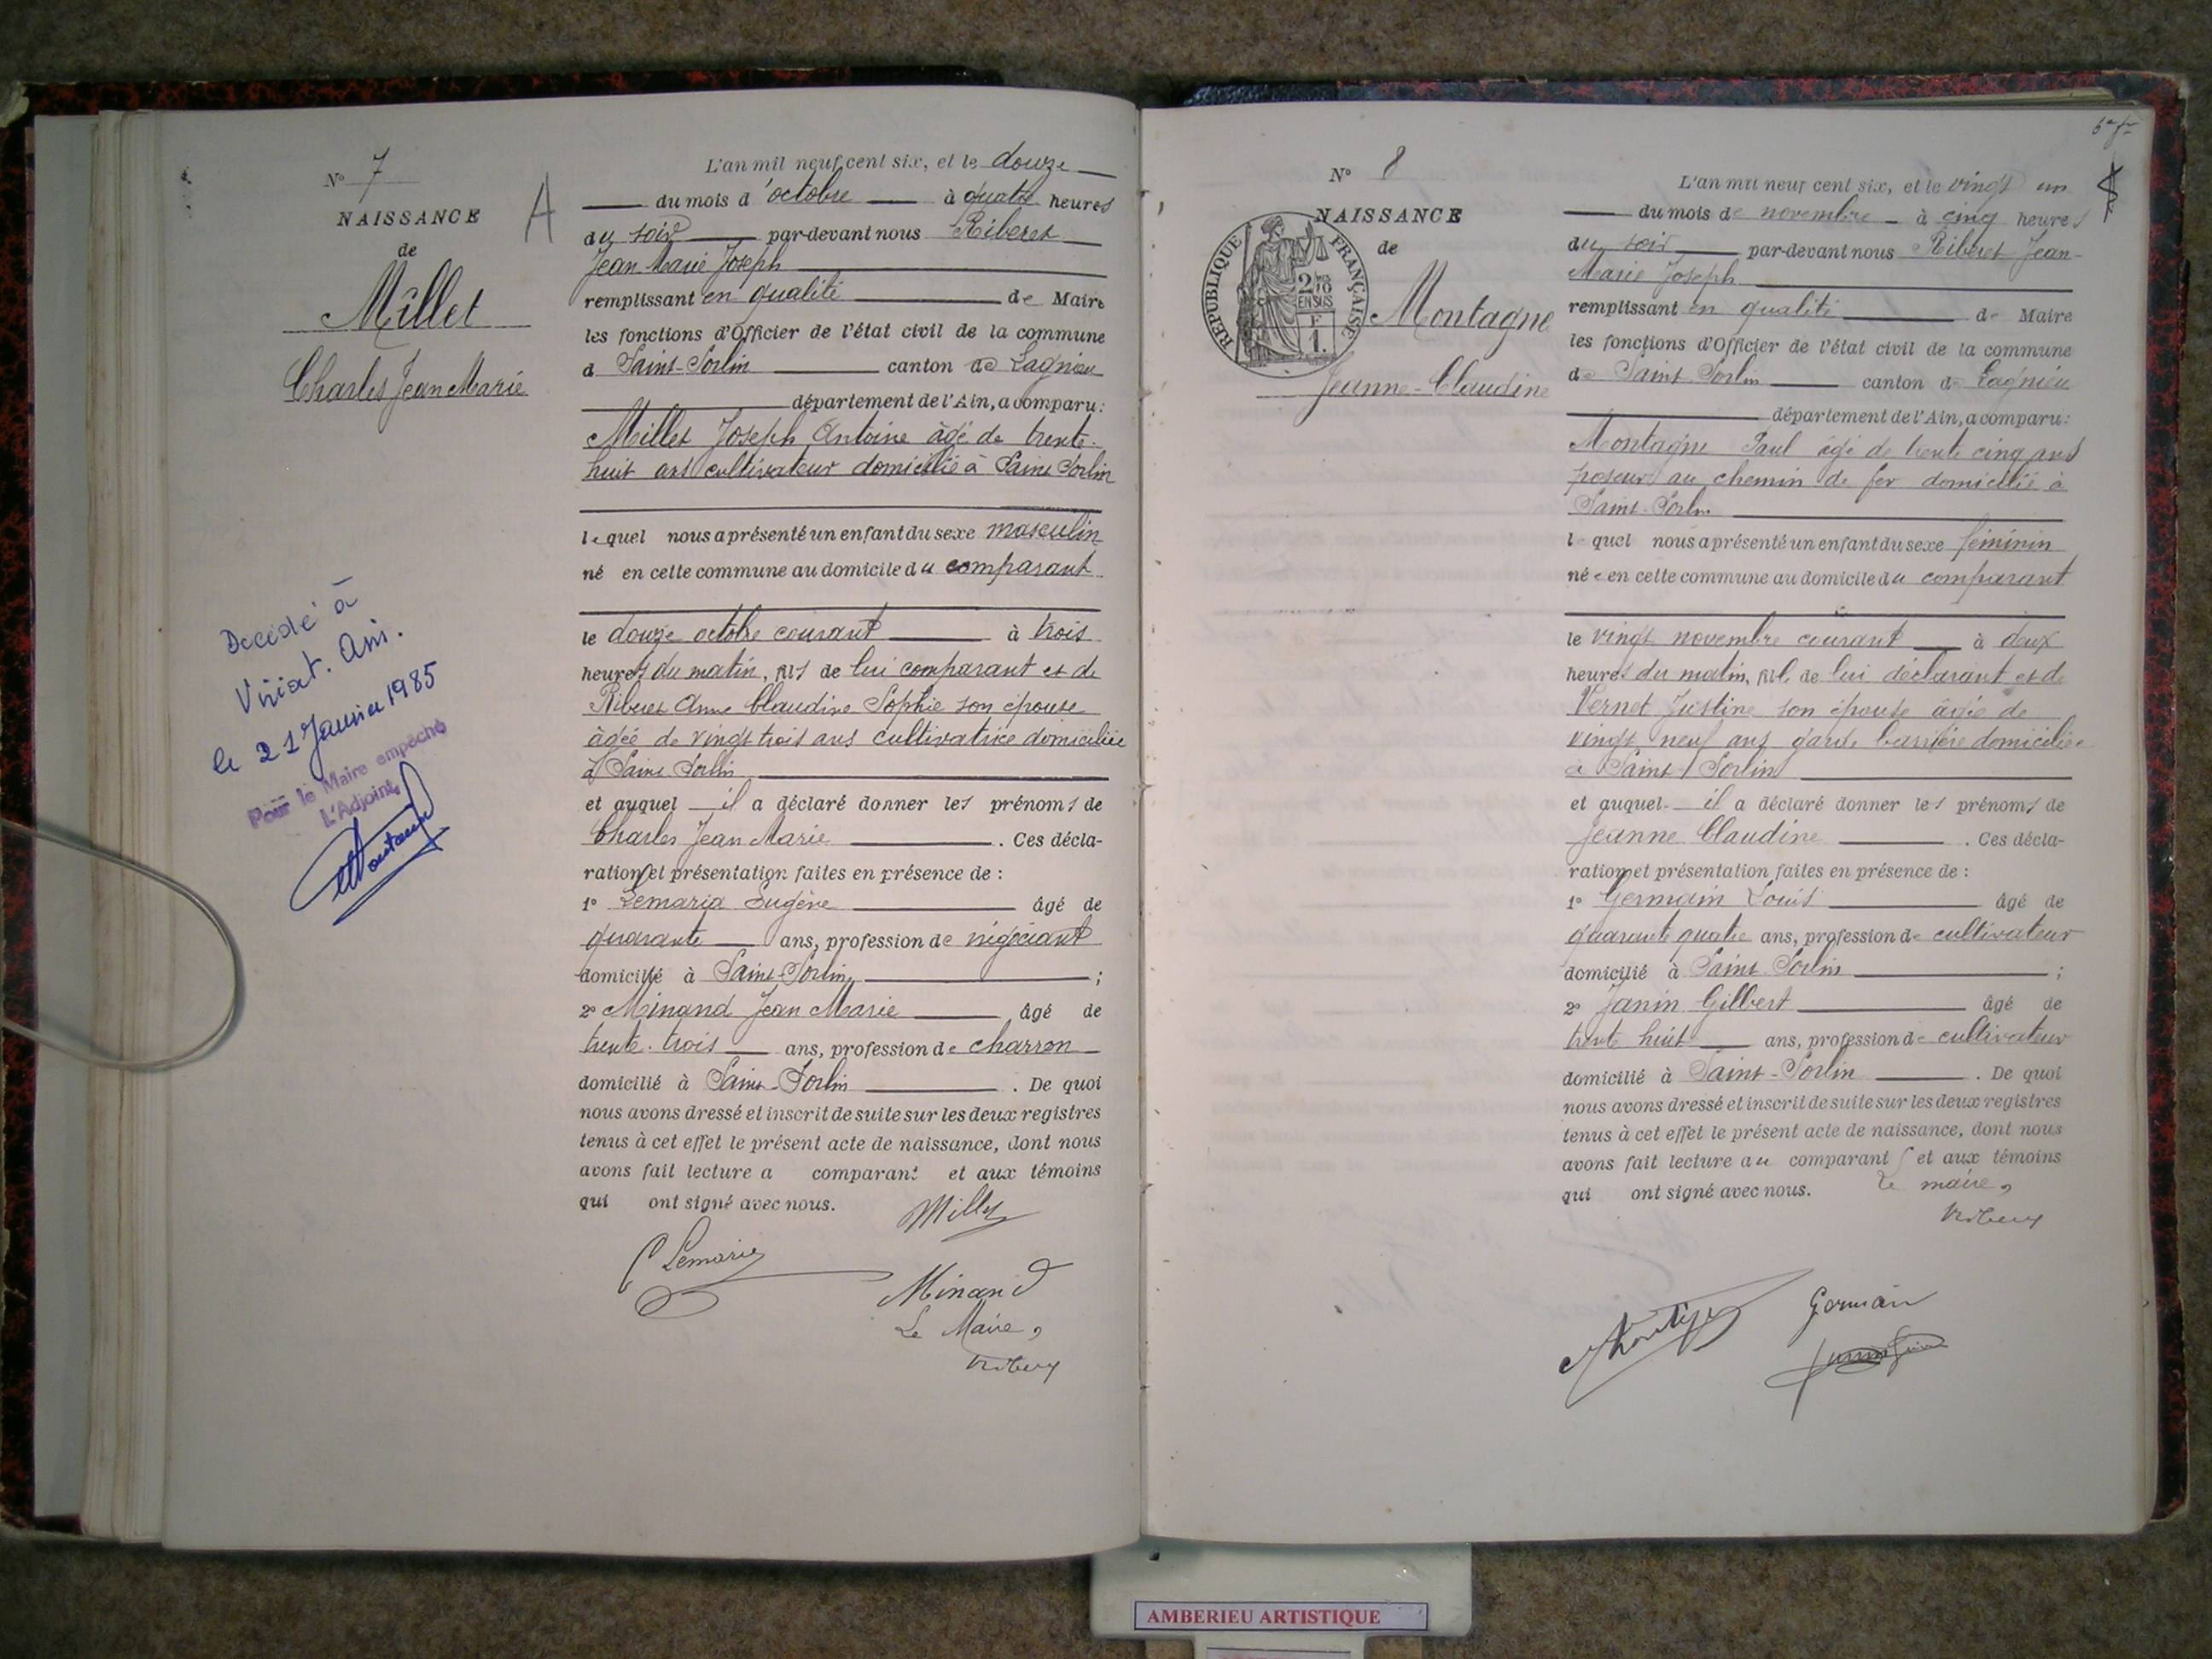 N° 7
NAISSANCE
de
Millet
Charles Jean Marie
A
Décédé à
Viriat. Ain.
le 21 Janvier 1985
Pour le Maire empêché
L'Adjoint,
L'an mil neuf cent six, et le douze
du mois d'octobre à quatre heures
du soir par-devant nous Ribéret
Jean Marie Joseph
remplissant en qualité de Maire
les fonctions d'Officier de l'état civil de la commune
d Saint-Sorlin canton de Lagnieu
département de l'Ain, a comparu:
Millet Joseph Antoine âgé de trente-
huit ans cultivateur domicilié à Saint Sorlin
lequel nous a présenté un enfant du sexe masculin
né en cette commune au domicile du comparant
le douze octobre courant à trois
heures du matin, fils de lui comparant et de
Riberet Anne Claudine Sophie son épouse
âgée de vingt trois ans cultivatrice domiciliée
à Saint Sorlin
et auquel il a déclaré donner les prénoms de
Charles Jean Marie . Ces décla-
ration et présentation faites en présence de :
1° Lemaria Eugène âgé de
quarante ans, profession de négociant
domicilié à Saint-Sorlin ;
2° Minand Jean Marie âgé de
trente-trois ans, profession de charron
domicilié à Saint-Sorlin . De quoi
nous avons dressé et inscrit de suite sur les deux registres
tenus à cet effet le présent acte de naissance, dont nous
avons fait lecture a comparant et aux témoins
qui ont signé avec nous. Millet
Minand
Le Maire,
Riberet
N° 8
NAISSANCE
de
RÉPUBLIQUE FRANÇAISE
2/10
EN SUS
F
1.
Montagne
Jeanne-Claudine
L'an mil neuf cent six, et le vingt un
du mois de novembre à cinq heures
du soir par-devant nous Ribéret Jean-
Marie Joseph
remplissant en qualité de Maire
les fonctions d'Officier de l'état civil de la commune
de Saint Sorlin canton de Lagnieu
département de l'Ain, a comparu:
Montagne Paul âgé de trente cinq ans
poseur au chemin de fer domicilié à
Saint-Sorlin
lequel nous a présenté un enfant du sexe féminin
née en cette commune au domicile du comparant
le vingt novembre courant à deux
heures du matin, fille de lui déclarant et de
Vernet Justine son épouse âgée de
vingt neuf ans garde barrière domiciliée
à Saint-Sorlin
et auquel il a déclaré donner les prénoms de
Jeanne Claudine . Ces décla-
ration et présentation faites en présence de :
1° Germain Louis âgé de
quarante quatre ans, profession de cultivateur
domicilié à Saint Sorlin ;
2° Janin Gilbert âgé de
trente huit ans, profession de cultivateur
domicilié à Saint-Sorlin . De quoi
nous avons dressé et inscrit de suite sur les deux registres
tenus à cet effet le présent acte de naissance, dont nous
avons fait lecture au comparant et aux témoins
qui ont signé avec nous. Le maire,
Riberet
Germain
AMBERIEU ARTISTIQUE